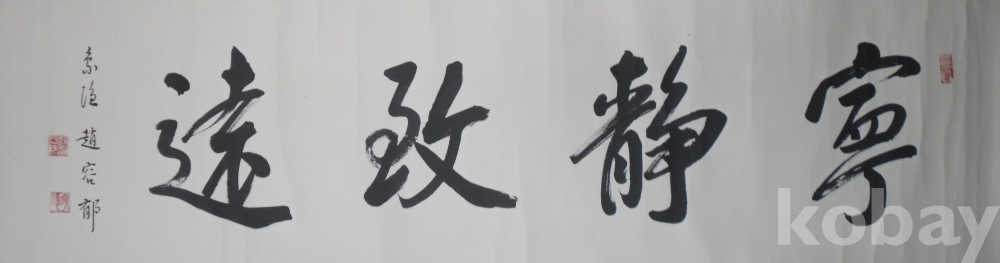 寧靜致遠
象隐 趙容郁
kobay